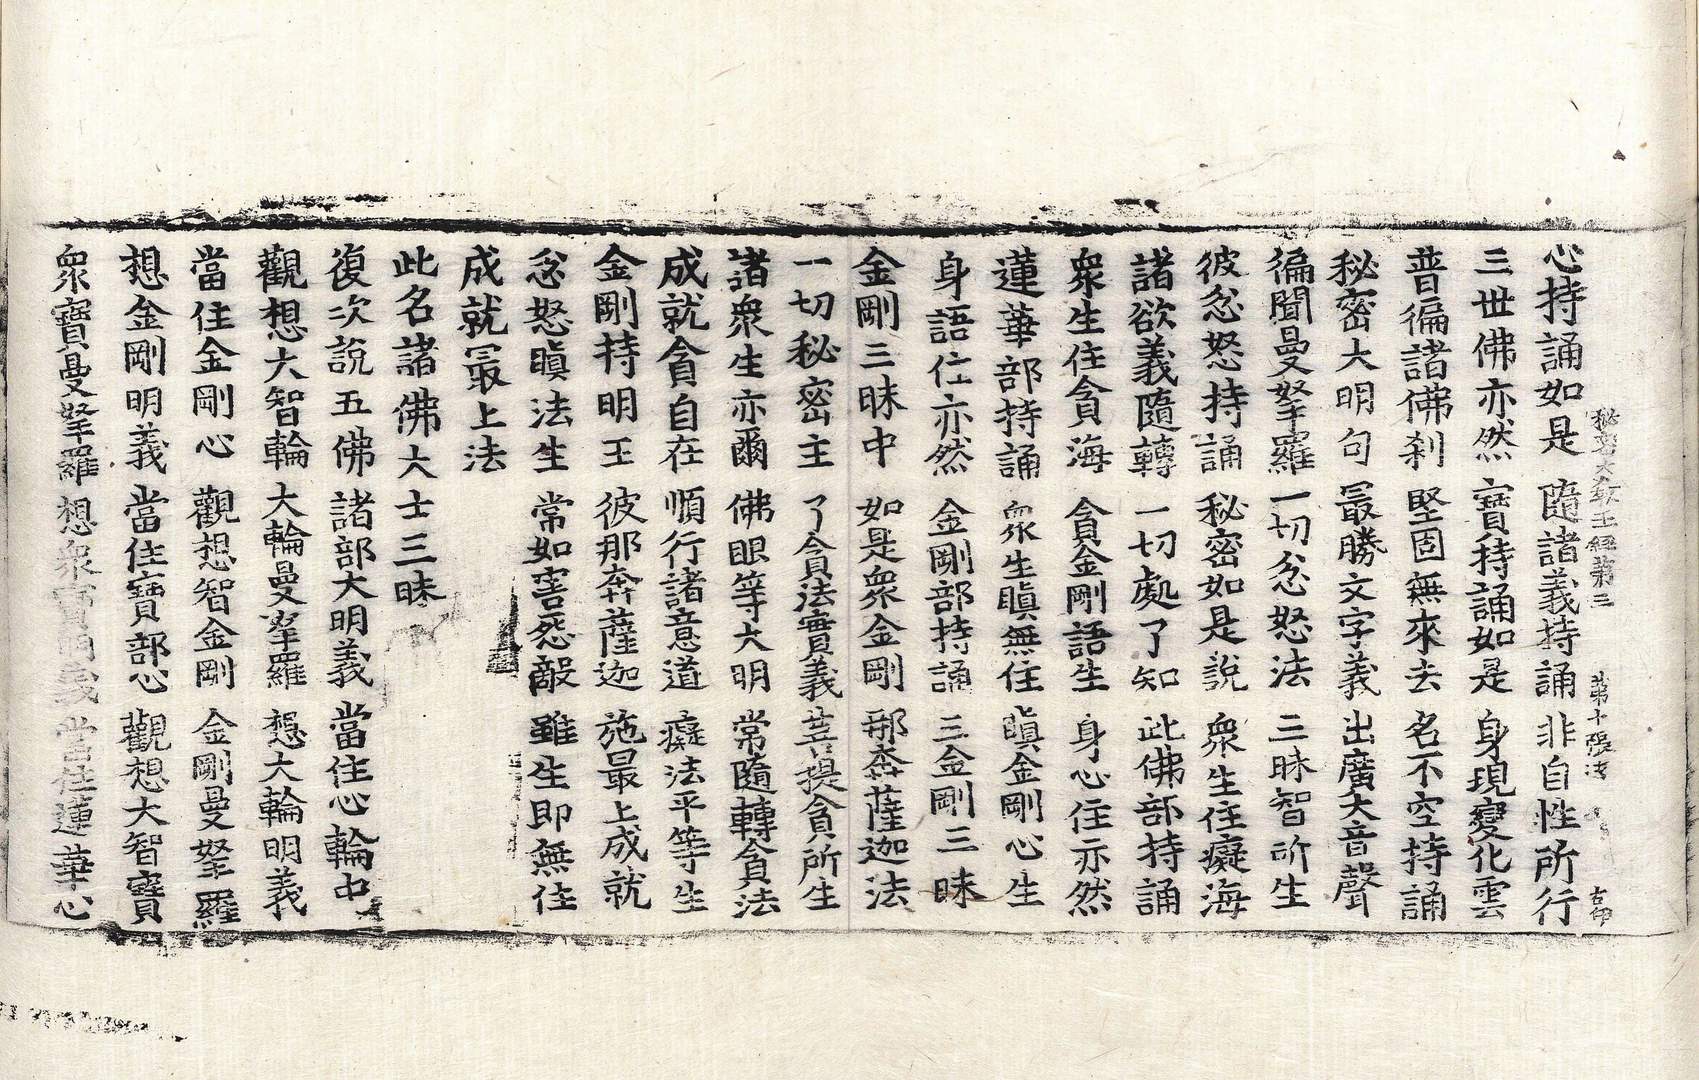 秘密大教王經第三 第十張 法 古印
心持誦如是 隨諸義持誦 非自性所行
三世佛亦然 寶持誦如是 身現變化雲
普徧諸佛刹 堅固無來去 名不空持誦
秘密大明句 最勝文字義 出廣大音聲
徧聞曼拏羅 一切忿怒法 三昧智所生
彼忿怒持誦 秘密如是說 衆生住癡海
諸欲義隨轉 一切處了知 此佛部持誦
衆生住貪海 貪金剛語生 身心住亦然
蓮華部持誦 衆生瞋無住 瞋金剛心生
身語住亦然 金剛部持誦 三金剛三昧
金剛三昧中 如是衆金剛 那奔薩迦法
一切秘密主 了貪法實義 菩提貪所生
諸衆生亦爾 佛眼等大明 常隨轉貪法
成就貪自在 順行諸意道 癡法平等生
金剛持明王 彼那奔薩迦 施最上成就
忿怒瞋法生 常如害怨敵 雖生即無住
成就最上法
此名諸佛大士三昧
復次說五佛 諸部大明義 當住心輪中
觀想大智輪 大輪曼拏羅 想大輪明義
當住金剛心 觀想智金剛 金剛曼拏羅
想金剛明義 當住寶部心 觀想大智寶
衆寶曼拏羅 想衆寶明義 當住蓮華心